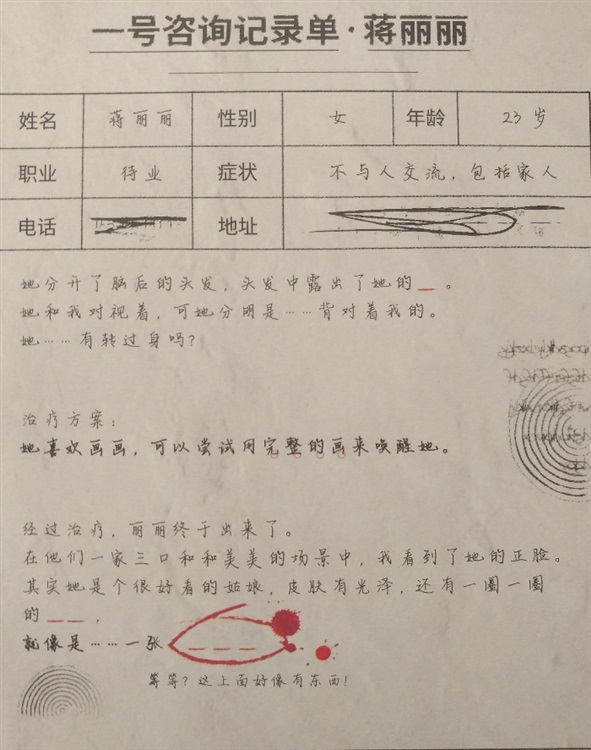 一号咨询记录单·蒋丽丽
姓名 蒋丽丽 性别 女 年龄 23岁
职业 待业 症状 不与人交流，包括家人
电话 地址
她分开了脑后的头发，头发中露出了她的_。
她和我对视着，可她分明是……背对着我的。
她……有转过身吗？
治疗方案：
她喜欢画画，可以尝试用完整的画来唤醒她。
经过治疗，丽丽终于出来了。
在他们一家三口和和美美的场景中，我看到了她的正脸。
其实她是个很好看的姑娘，皮肤有光泽，还有一圈一圈
的__，
就像是……一张___
等等？这上面好像有东西！